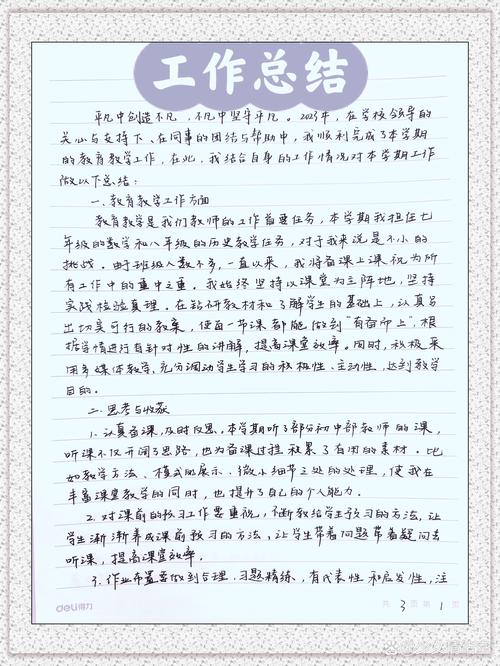 工作总结
平凡中创造不凡，不凡中坚守平凡。2023年，在学校领导的
关心与支持下、在同事的团结与帮助中，我顺利完成了本学期
的教育教学工作，在此，我结合自身的工作情况对本学期工作
做以下总结：
一、教育教学工作方面
教育教学是我们教师的工作首要任务，本学期我担任七
年级的数学和八年级的历史教学任务，对于我来说是不小的
挑战。由于班级人数不多，一直以来，我将备课上课视为所
有工作中的重中之重。我始终坚持以课堂为主阵地，坚持
实践检验真理。在钻研教材和了解学生的基础上，认真写
出切实可行的教案，使每一节课都能做到“有备而上”，根
据学情进行有针对性的讲解，提高课堂效率。同时，积极采
用多媒体教学，充分调动学生学习的积极性、主动性，达到教学
目的。
二、思考与收获
1. 认真备课，及时反思。本学期听了部分初中部教师的课，
听课不仅开阔了思路，也为备课过程积累了有用的素材。比
如教学方法、模式的展示、微小细节之处的处理，使我在
丰富课堂教学的同时，也提升了自己的个人能力。
2. 对课前的预习工作要重视，不断教给学生预习的方法，让
学生渐渐养成课前预习的方法、让学生带着问题带着疑问去
听课，提高课堂效率。
3. 作业布置要做到合理、习题精练，有代表性和启发性，注
deli得力
共 3 页 第 1 页